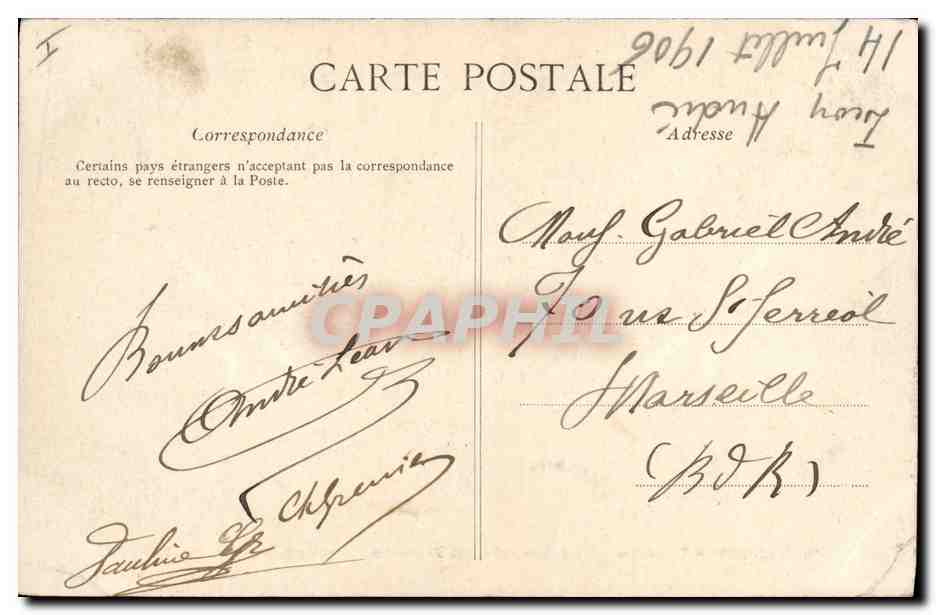 I
14 Juillet 1906
Léon André
CARTE POSTALE
Correspondance
Adresse
Certains pays étrangers n'acceptant pas la correspondance
au recto, se renseigner à la Poste.
Mons. Gabriel André
70 rue St Ferréol
Marseille
(B d R)
CPAPHIL
André Léon
Ch Grenier
Pauline